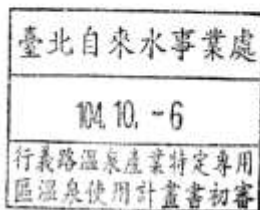 臺北自來水事業處
104.10.-6
行義路溫泉產業特定專用
區溫泉使用計畫書初審